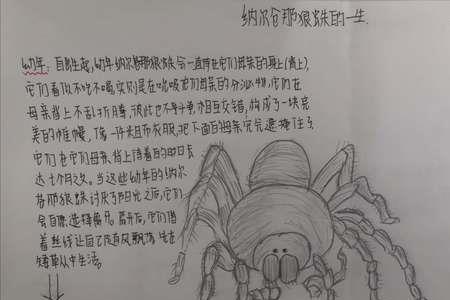 纳尔包那狼蛛的一生
幼年：自出生起，幼年纳尔那狼蛛会一直待在它们母亲的身上(背上)，
它们看似不吃不喝实则是在吮吸它们母亲的分泌物，它们在
母亲背上不乱折腾，彼此也不争斗，相互交错，构成了一块完
美的帷幔，像一件毛布衣服，把下面的母亲完完遮掩住了
它们在它们母亲背上待着的时日长
达七个月之久。当这些幼年的纳尔
包那狼蛛讨厌了阳光之后，它们
会自愿选择离开，它们借
着丝线让自己随风飘荡
矮草丛中生活。